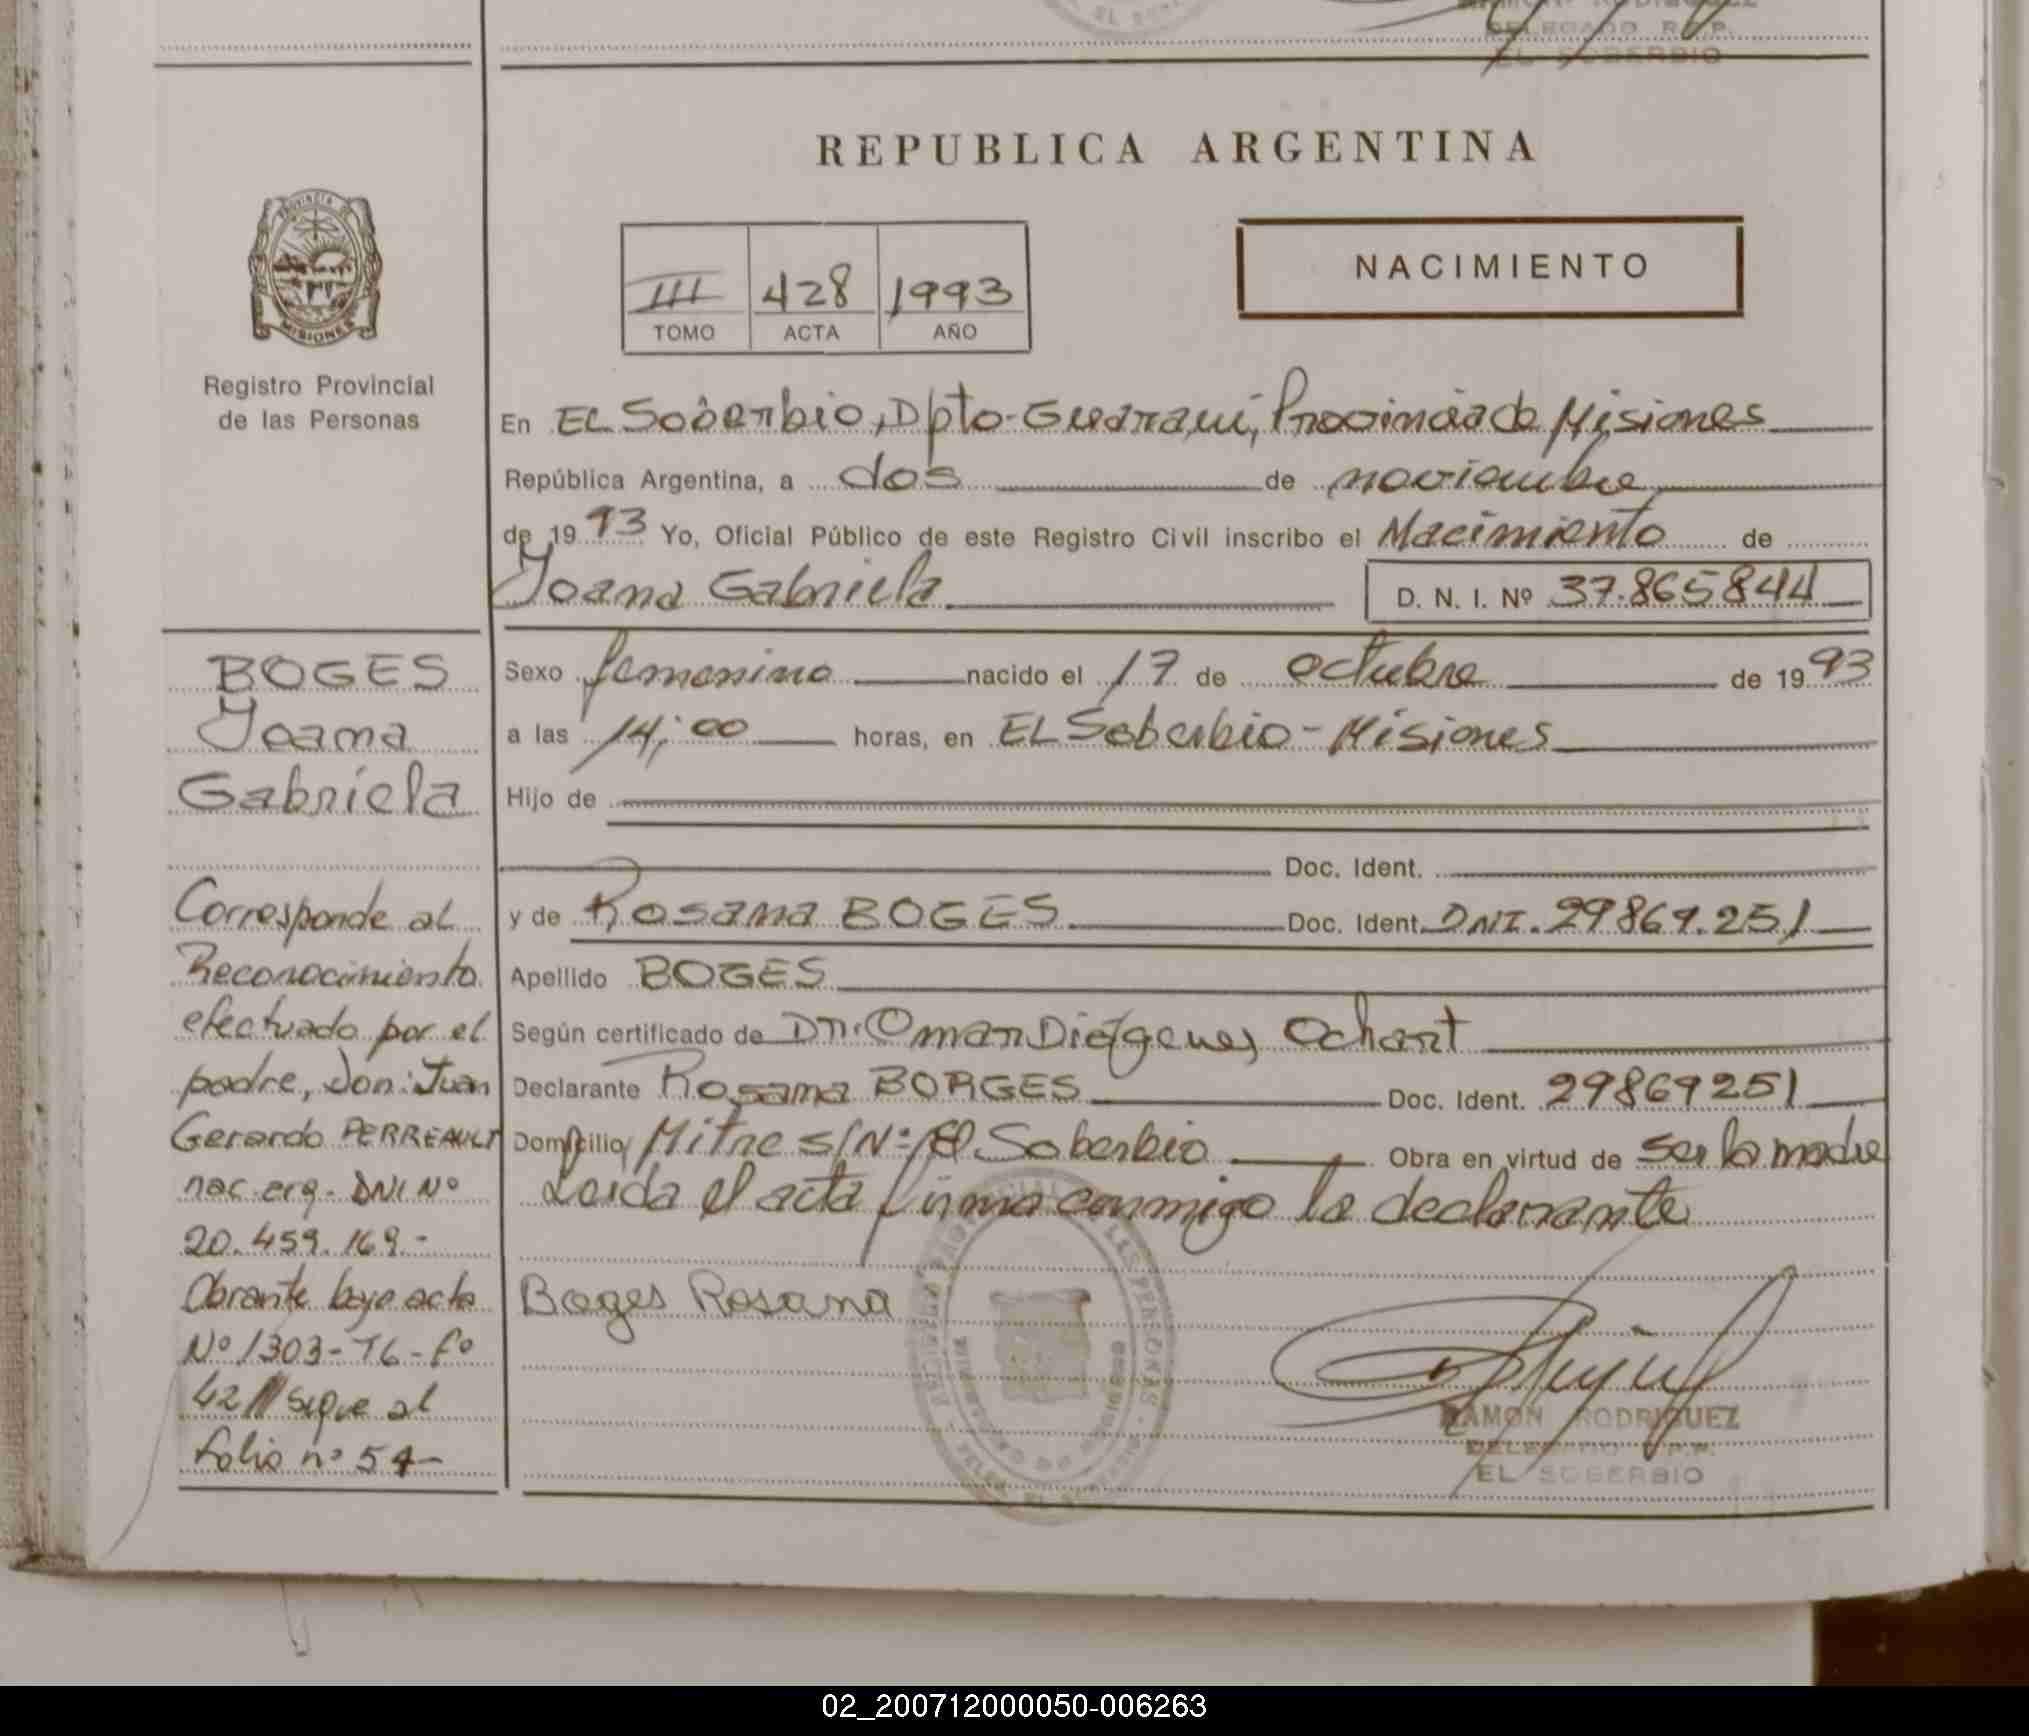 DELEGADO R.P.P.
EL SOBERBIO
REPUBLICA ARGENTINA
PROVINCIA DE
MISIONES
Registro Provincial
de las Personas
NACIMIENTO
III 428 1993
TOMO ACTA AÑO
En EL Soberbio, Dpto-Guarani, Provincia de Misiones
República Argentina, a dos de noviembre
de 1993 Yo, Oficial Público de este Registro Civil inscribo el Nacimiento de
Yoana Gabriela D. N. I. Nº 37.865844
BOGES
Yoana
Gabriela
Sexo femenino nacido el 17 de octubre de 1993
a las 14:00 horas, en EL Soberbio - Misiones
Hijo de
Doc. Ident.
y de Rosana BOGES Doc. Ident. DNI. 29869.251
Apellido BOGES
Según certificado de Dr. Omar Diógenes Ochart
Declarante Rosana BORGES Doc. Ident. 29869251
Domicilio Mitre S/Nº El Soberbio Obra en virtud de ser la madre
Leida el acta firma conmigo la declarante
Boges Rosana
RAMON RODRIGUEZ
DELEGADO R.P.P.
EL SOBERBIO
Corresponde al
Reconocimiento
efectuado por el
padre, Don: Juan
Gerardo PERREAULT
nac. arg. DNI Nº
20.459.169.-
Obrante bajo acta
Nº 1303-T6-Fº
42 // sigue al
folio nº 54-
02_200712000050-006263